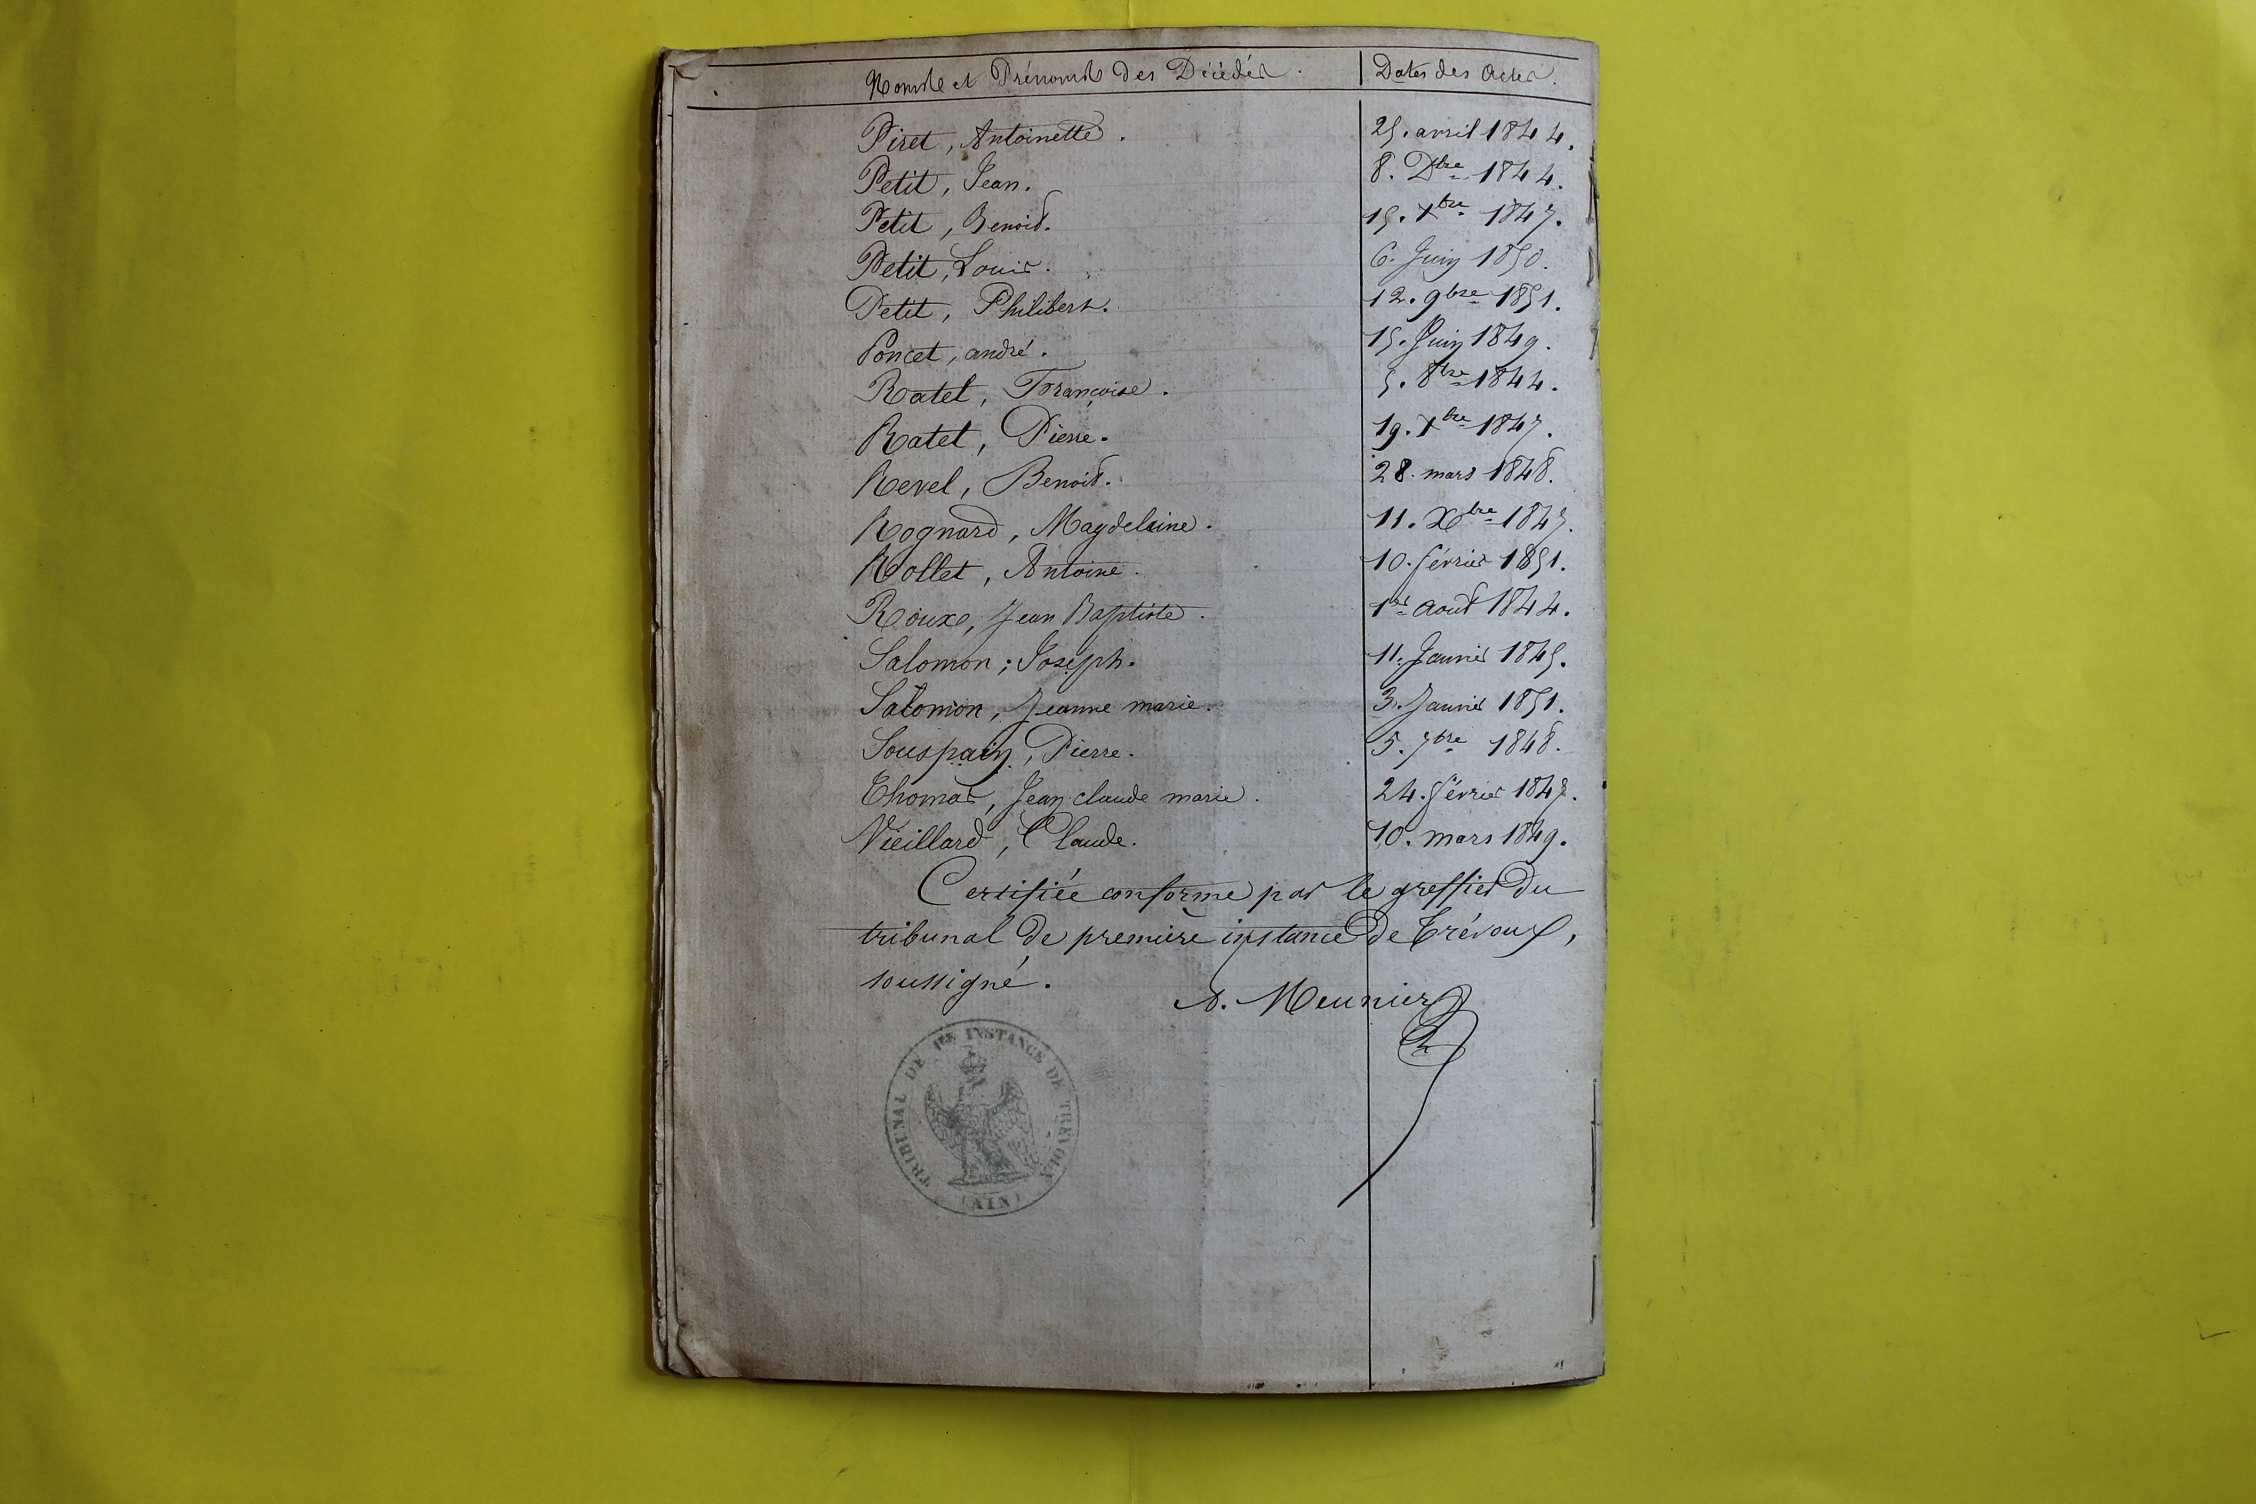 Noms et Prénoms des Décédés. Dates des Actes.
Piret, Antoinette. 25. avril 1844.
Petit, Jean. 8. Xbre 1844.
Petit, Benoit. 15. Xbre 1847.
Petit, Louis. 6. Juin 1850.
Petit, Philibert. 12. 9bre 1851.
Poncet, andré. 15. Juin 1849.
Ratel, Françoise. 5. 8bre 1844.
Ratet, Pierre. 19. Xbre 1847.
Revel, Benoit. 28. mars 1848.
Rognard, Magdeleine. 11. Xbre 1847.
Rollet, Antoine. 10. février 1851.
Roux, Jean Baptiste. 1er Aout 1844.
Salomon, Joseph. 11. Janvier 1845.
Salomon, Jeanne marie. 3. Janvier 1851.
Souspain, Pierre. 5. 7bre 1848.
Thomas, Jean claude marie. 24. février 1848.
Vieillard, Claude. 10. mars 1849.
Certifiée conforme par le greffier du
tribunal de première instance de Trévoux,
soussigné.
A. Meunier
TRIBUNAL DE 1RE INSTANCE DE TREVOUX
(AIN)